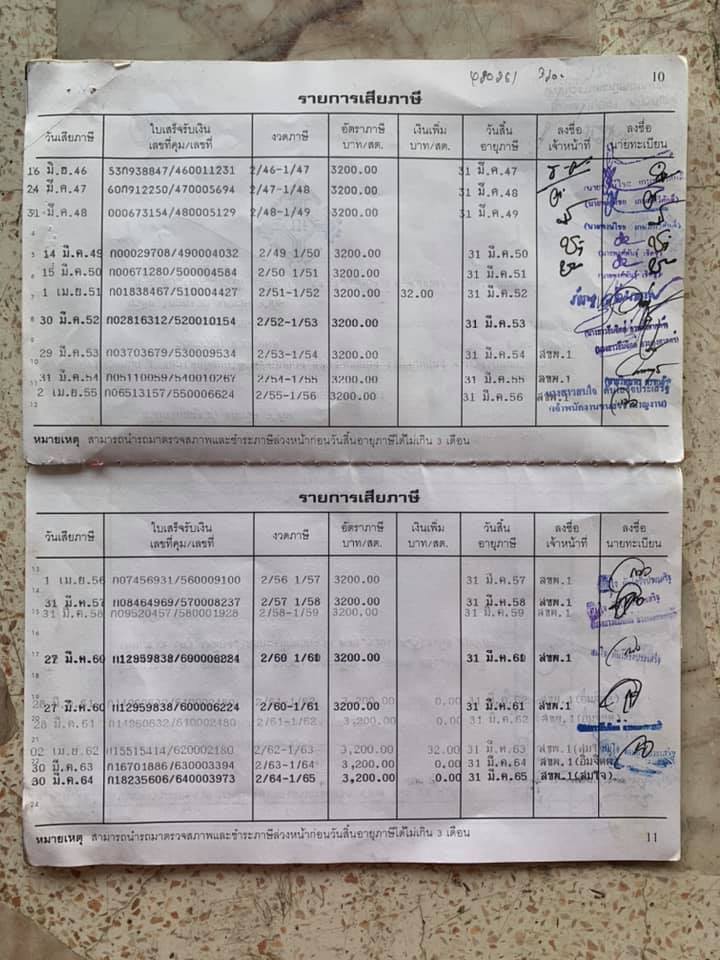 10
รายการเสียภาษี
วันเสียภาษี ใบเสร็จรับเงิน เลขที่คุม/เลขที่ งวดภาษี อัตราภาษี บาท/สต. เงินเพิ่ม บาท/สต. วันสิ้น อายุภาษี ลงชื่อ เจ้าหน้าที่ ลงชื่อ นายทะเบียน
16 มิ.ย.46 53ก938847/460011231 2/46-1/47 3200.00 31 มี.ค.47
24 มี.ค.47 60ก912250/470005694 2/47-1/48 3200.00 31 มี.ค.48
31 มี.ค.48 000673154/480005129 2/48-1/49 3200.00 31 มี.ค.49
14 มี.ค.49 ก00029708/490004032 2/49 1/50 3200.00 31 มี.ค.50
15 มี.ค.50 ก00671280/500004584 2/50 1/51 3200.00 31 มี.ค.51
1 เม.ย.51 ก01838467/510004427 2/51-1/52 3200.00 32.00 31 มี.ค.52
30 มี.ค.52 ก02816312/520010154 2/52-1/53 3200.00 31 มี.ค.53
29 มี.ค.53 ก03703679/530009534 2/53-1/54 3200.00 31 มี.ค.54 สขพ.1
31 มี.ค.54 ก05110059/540010267 2/54-1/55 3200.00 31 มี.ค.55 สขพ.1
2 เม.ย.55 ก06513157/550006624 2/55-1/56 3200.00 31 มี.ค.56
หมายเหตุ สามารถนำรถมาตรวจสภาพและชำระภาษีล่วงหน้าก่อนวันสิ้นอายุภาษีได้ไม่เกิน 3 เดือน
รายการเสียภาษี
วันเสียภาษี ใบเสร็จรับเงิน เลขที่คุม/เลขที่ งวดภาษี อัตราภาษี บาท/สต. เงินเพิ่ม บาท/สต. วันสิ้น อายุภาษี ลงชื่อ เจ้าหน้าที่ ลงชื่อ นายทะเบียน
1 เม.ย.56 ก07456931/560009100 2/56 1/57 3200.00 31 มี.ค.57 สขพ.1
31 มี.ค.57 ก08464969/570008237 2/57 1/58 3200.00 31 มี.ค.58 สขพ.1
31 มี.ค.58 ก09520457/580001928 2/58-1/59 3200.00 31 มี.ค.59 สขพ.1
27 มี.ค.60 ก12959838/600006224 2/60 1/61 3200.00 31 มี.ค.61 สขพ.1
27 มี.ค.60 ก12959838/600006224 2/60-1/61 3200.00 31 มี.ค.61 สขพ.1
28 มี.ค.61 ก14960632/610002480 2/61-1/62 3,200.00 0.00 31 มี.ค.62
02 เม.ย.62 ก15515414/620002180 2/62-1/63 3,200.00 32.00 31 มี.ค.63 สขพ.1(สมใจ)
30 มี.ค.63 ก16701886/630003394 2/63-1/64 3,200.00 0.00 31 มี.ค.64 สขพ.1
30 มี.ค.64 ก18235606/640003973 2/64-1/65 3,200.00 0.00 31 มี.ค.65 สขพ.1(สมใจ)
หมายเหตุ สามารถนำรถมาตรวจสภาพและชำระภาษีล่วงหน้าก่อนวันสิ้นอายุภาษีได้ไม่เกิน 3 เดือน
11